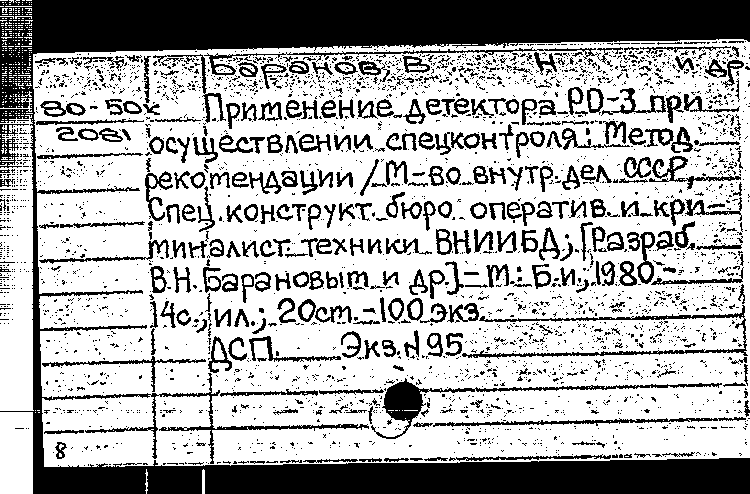 Баранов, В. Н. и др.
80-50к Применение детектора РD-3 при
2081 осуществлении спецконтроля: Метод.
рекомендации / М-во внутр. дел СССР,
Спец. конструкт. бюро оператив. и кри-
миналист. техники ВНИИБД; [Разраб.
В.Н. Барановым и др.]-М.: Б.и., 1980.-
14с., ил.; 20см.-100 экз.
ДСП. Экз. N 95
8